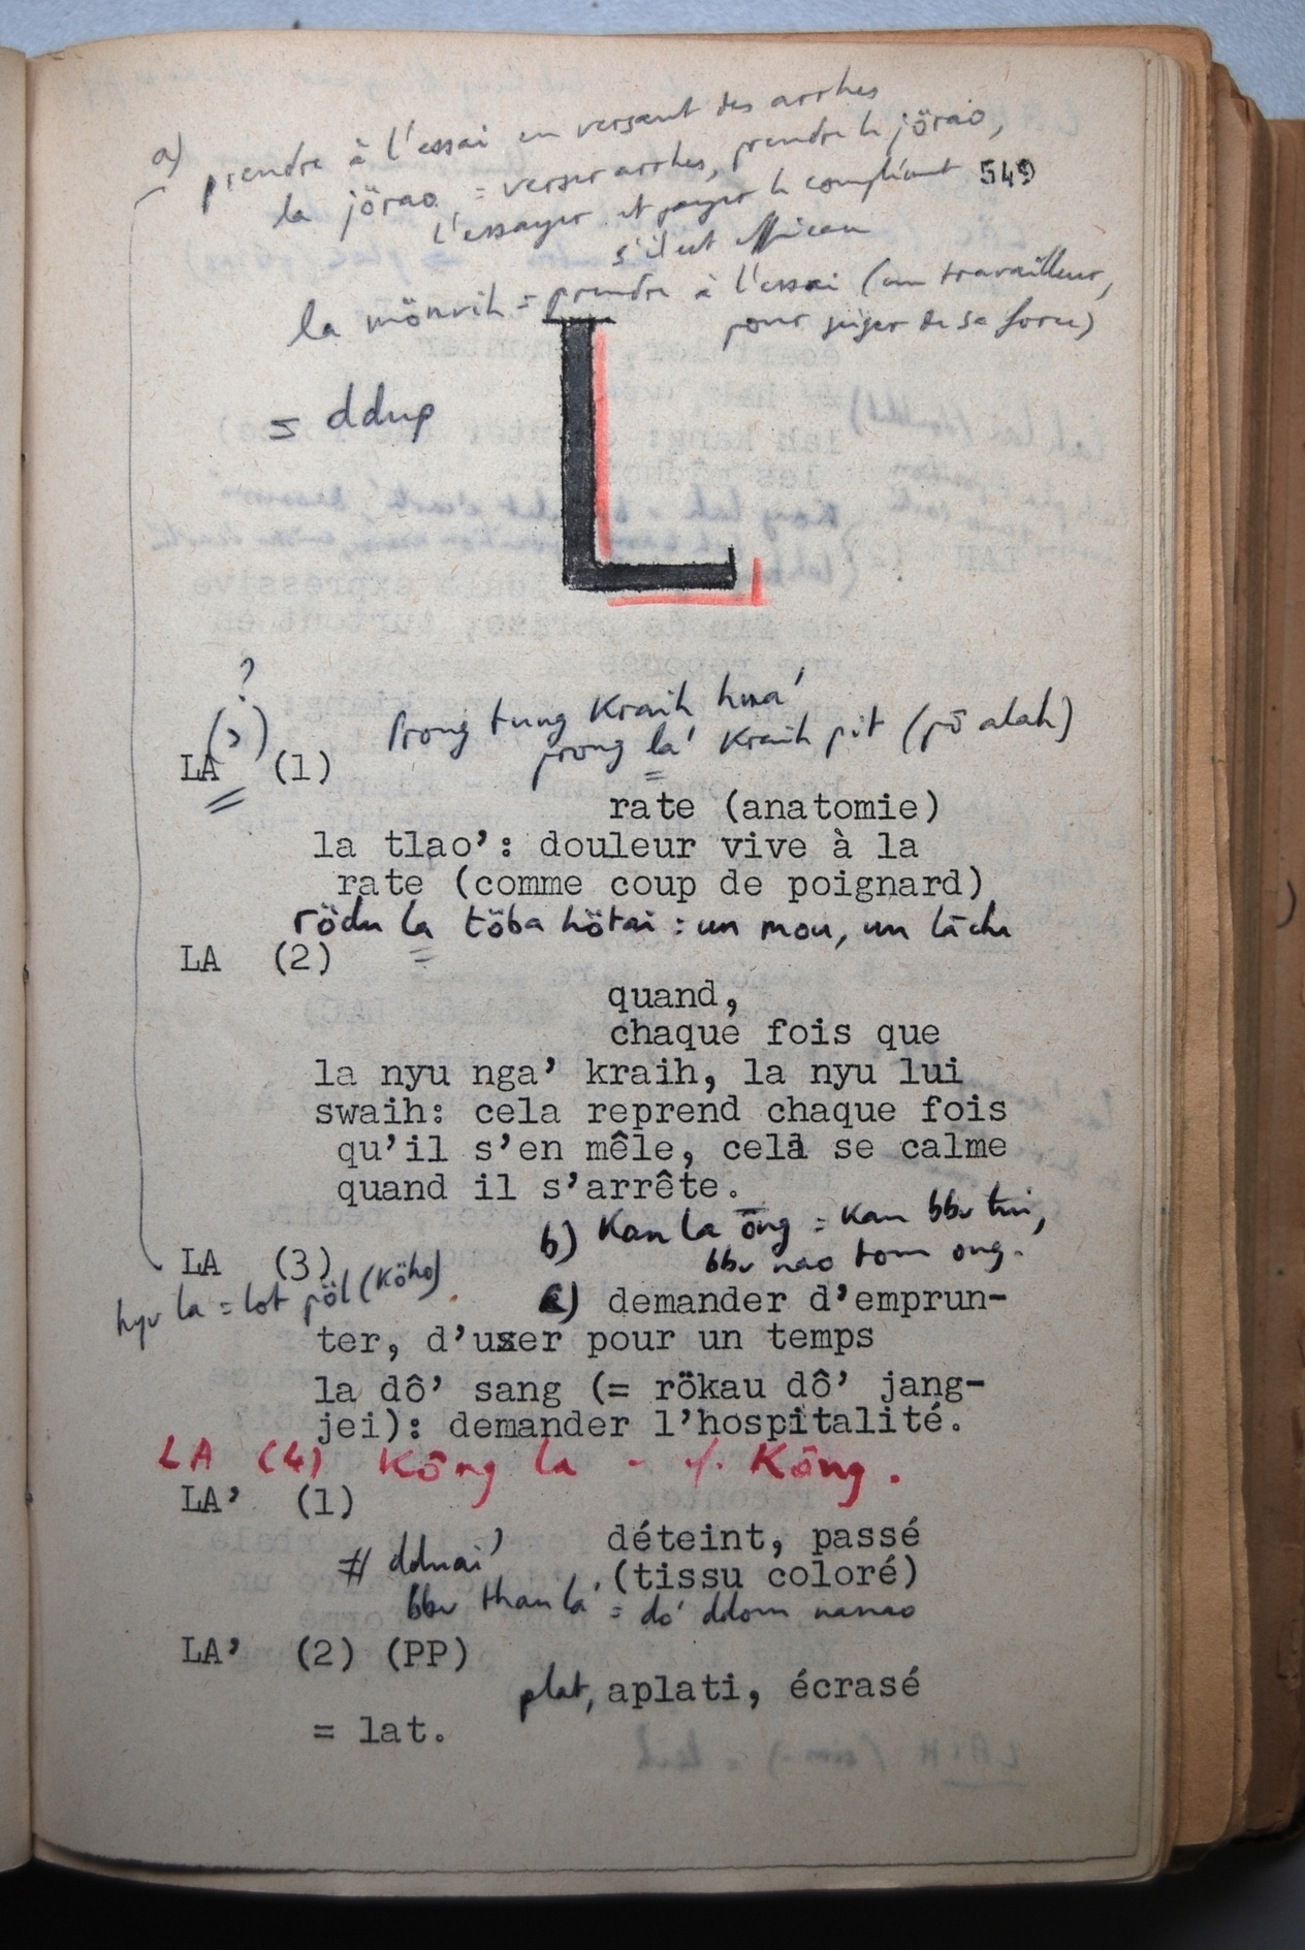 a) prendre à l'essai en versant des arrhes
la jörao = verser arrhes, prendre le jörao,
549
l'essayer et payer le complément
s'il est efficace
la mönvih = prendre à l'essai (un travailleur,
pour juger de sa force)
= ddup
L
?
(')
prong tung kraih hwa'
LA (1)
prong la' kraih pit (pô alah)
rate (anatomie)
la tlao’: douleur vive à la
rate (comme coup de poignard)
rödu la töba hötai : un mou, un lâche
LA (2)
quand,
chaque fois que
la nyu nga’ kraih, la nyu lui
swaih: cela reprend chaque fois
qu’il s’en mêle, cela se calme
quand il s’arrête.
b) Kan la ōng = kan bbv tui,
bbv nao tom ong.
LA (3)
hyv la = lot pöl (Köho)
c) demander d’emprun-
ter, d’user pour un temps
la dô’ sang (= rökau dô’ jang-
jei): demander l’hospitalité.
LA (4) Kông la - cf. Kông.
LA’ (1)
déteint, passé
# dduai'
(tissu coloré)
bbv than la' = do' ddom nanao
LA’ (2) (PP)
plat, aplati, écrasé
= lat.